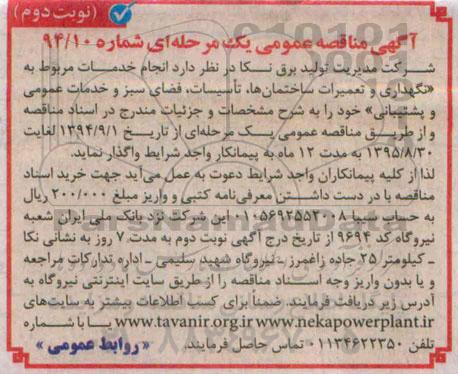 (نوبت دوم)
آگهی مناقصه عمومی یک مرحله‌ای شماره ۹۴/۱۰
شرکت مدیریت تولید برق نکا در نظر دارد انجام خدمات مربوط به
«نگهداری و تعمیرات ساختمان‌ها، تأسیسات، فضای سبز و خدمات عمومی
و پشتیبانی» خود را به شرح مشخصات و جزئیات مندرج در اسناد مناقصه
و از طریق مناقصه عمومی یک مرحله‌ای از تاریخ ۱۳۹۴/۹/۱ لغایت
۱۳۹۵/۸/۳۰ به مدت ۱۲ ماه به پیمانکار واجد شرایط واگذار نماید.
لذا از کلیه پیمانکاران واجد شرایط دعوت به عمل می‌آید جهت خرید اسناد
مناقصه با در دست داشتن معرفی‌نامه کتبی و واریز مبلغ ۲۰۰/۰۰۰ ریال
به حساب سیبا ۰۱۰۵۶۹۲۵۵۲۰۰۸ این شرکت نزد بانک ملی ایران شعبه
نیروگاه کد ۹۶۹۴ از تاریخ درج آگهی نوبت دوم به مدت ۷ روز به نشانی نکا
ـ کیلومتر ۲۵ جاده زاغمرز ـ نیروگاه شهید سلیمی ـ اداره تدارکات مراجعه
و یا بدون واریز وجه اسناد مناقصه را از طریق سایت اینترنتی نیروگاه به
آدرس زیر دریافت فرمایند. ضمناً برای کسب اطلاعات بیشتر به سایت‌های
www.tavanir.org.ir www.nekapowerplant.ir و یا با شماره
تلفن ۰۱۱۳۴۶۲۲۳۵۰ تماس حاصل فرمایند.
« روابط عمومی »